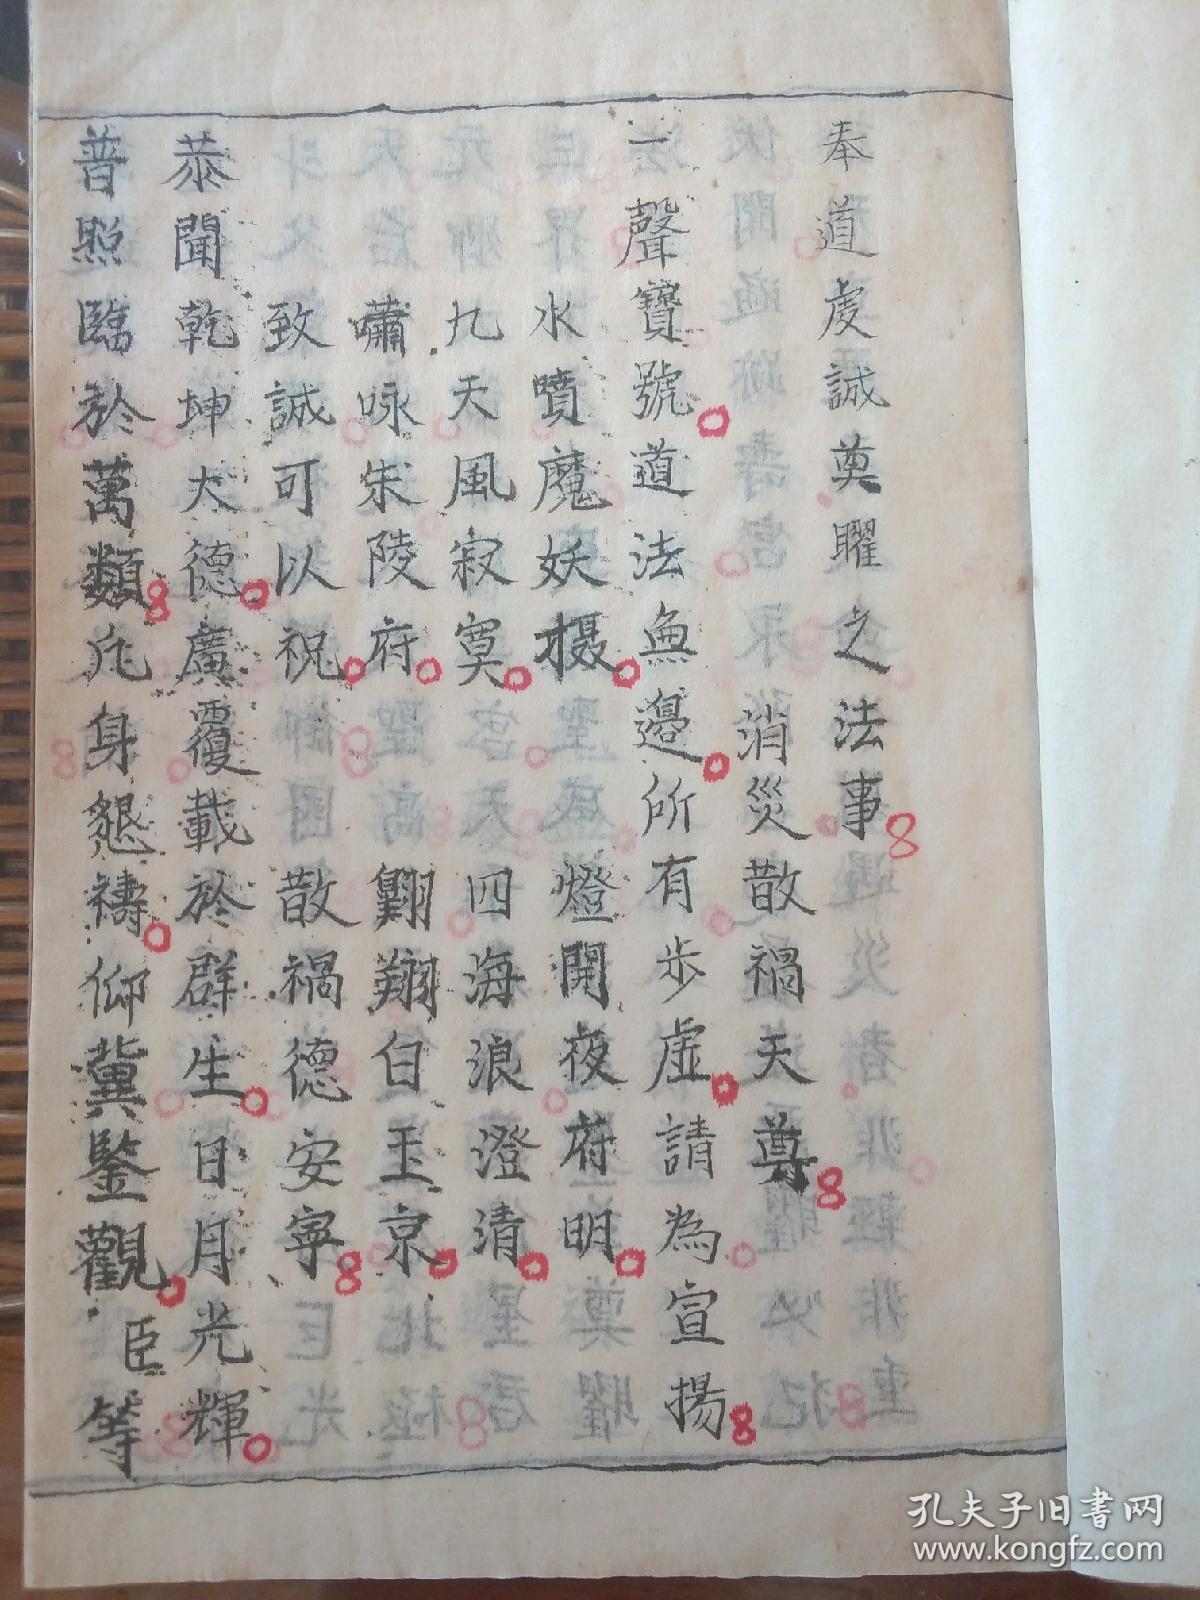 奉道虔誠奠耀之法事
消災散禍天尊
一聲寶號道法無邊所有步虛請為宣揚
水噴魔妖攝 燈開夜府明
九天風寂寞 四海浪澄清
嘯咏朱陵府 翺翔白玉京
致誠可以祝 散禍德安寧
恭聞乾坤大德廣覆載於群生日月光輝
普照臨於萬類凡身懇禱仰冀鑒觀臣等
孔夫子旧书网
www.kongfz.com